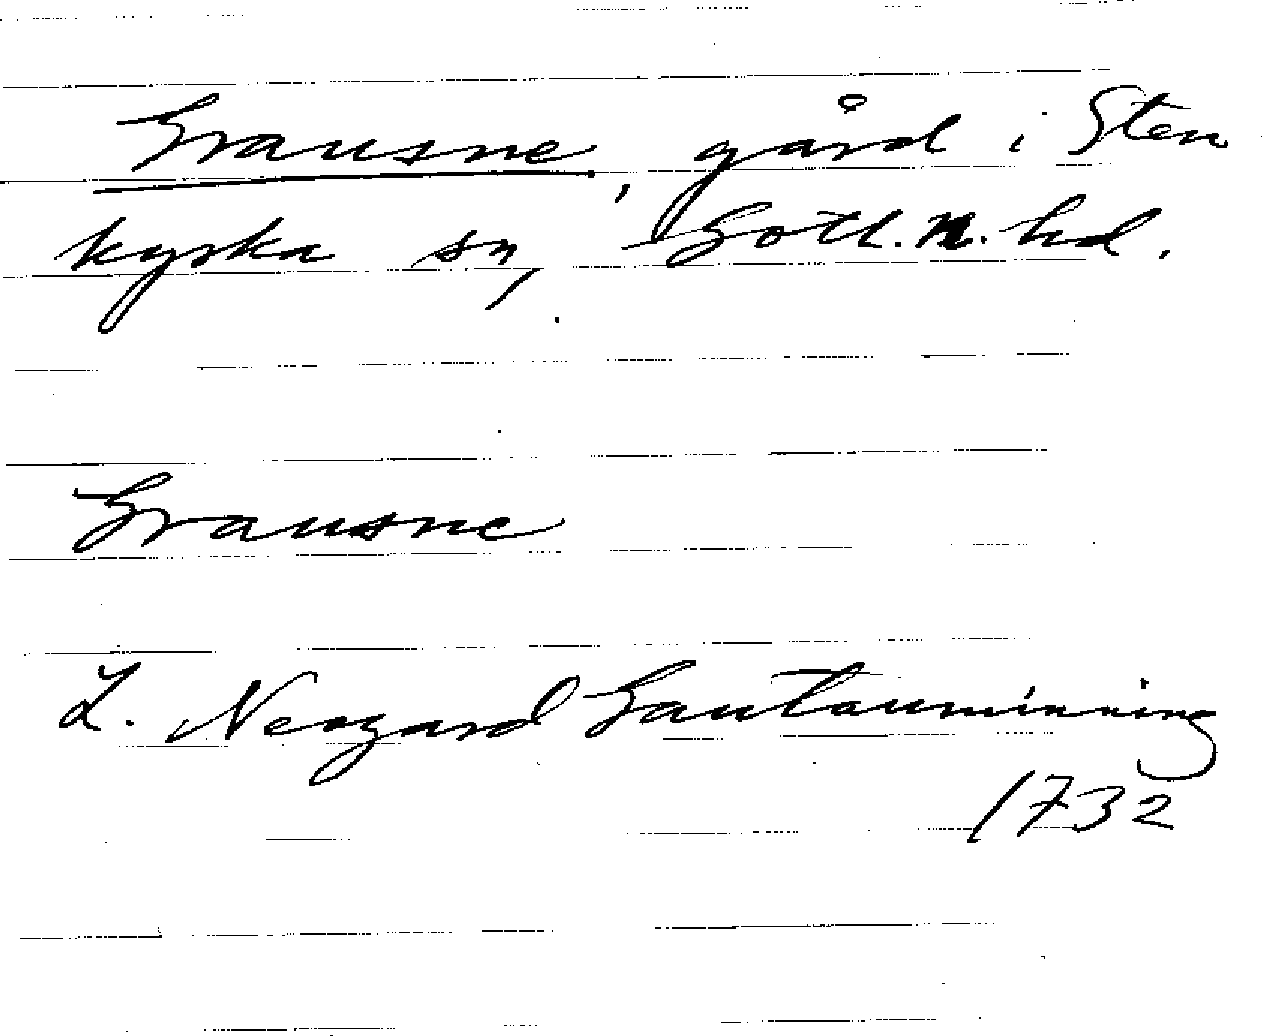 Grausne, gård i Sten
kyrka sn, Gotl. n. hd.
Grausne
L. Neogard Gautauminning
1732